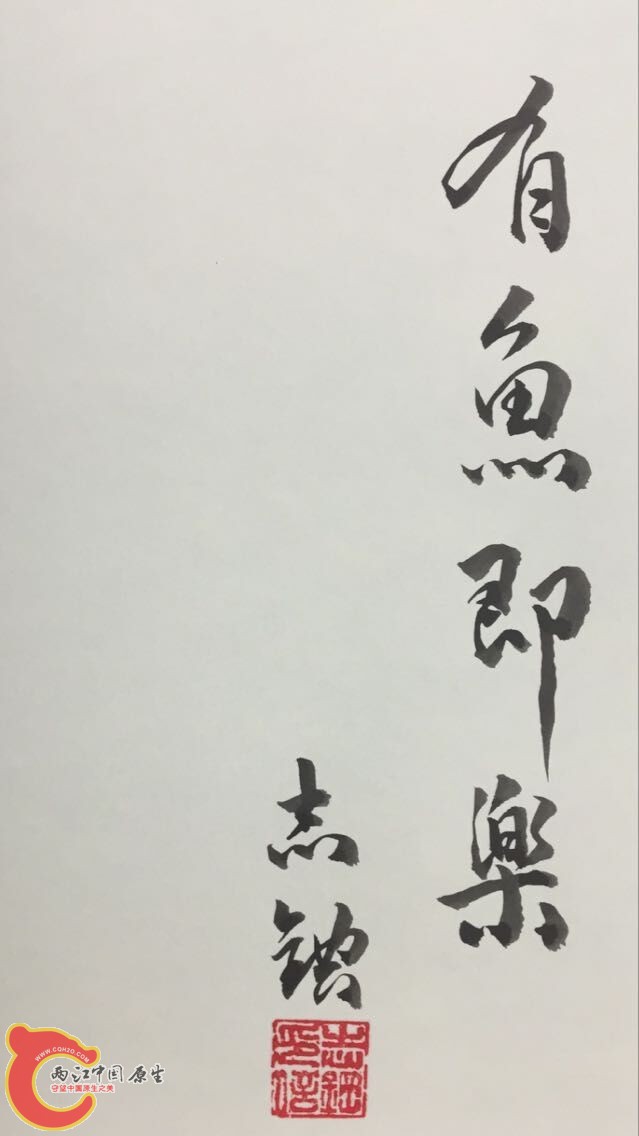 有魚即樂
志鋼
志鋼印信
WWW.CQH2O.COM
两江中国原生
守望中国原生之美